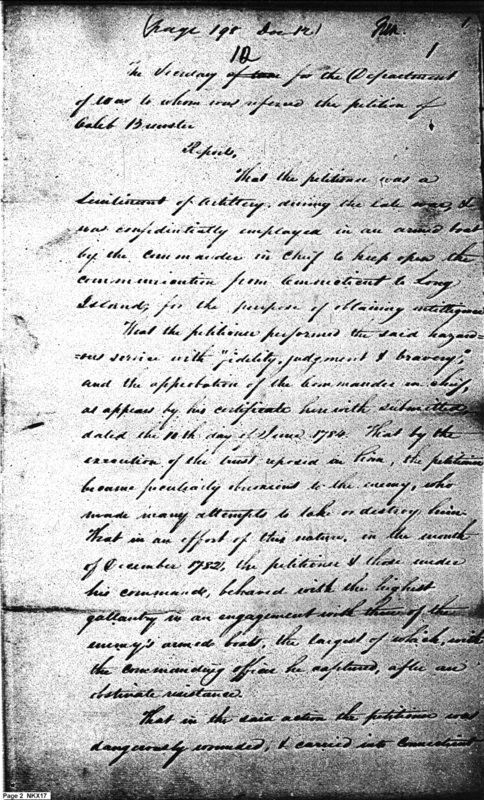 (page 198 Doc 12)
10
1
The Secretary of war for the Department
of War to whom was referred the petition of
Caleb Brewster
Reports,
That the petitioner was a
Lieutenant of Artillery, during the late war, &
was confidentially employed in an armed boat
by the Commander in Chief to keep open the
communication from Connecticut to Long
Island, for the purpose of obtaining intelligence
That the petitioner performed the said hazard=
=ous service with "fidelity, judgment & bravery",
and the approbation of the Commander in Chief,
as appears by his certificate herewith submitted,
dated the 10th day of June 1784. That by the
execution of the trust reposed in him, the petitioner
became peculiarly obnoxious to the enemy, who
made many attempts to take or destroy him.
That in an effort of this nature, in the month
of December 1782, the petitioner & those under
his command, behaved with the highest
gallantry in an engagement with three of the
enemy's armed boats, the largest of which, with
the commanding officer he captured, after an
obstinate resistance.
That in the said action the petitioner was
dangerously wounded, & carried into Connecticut
Page 2 NKX17